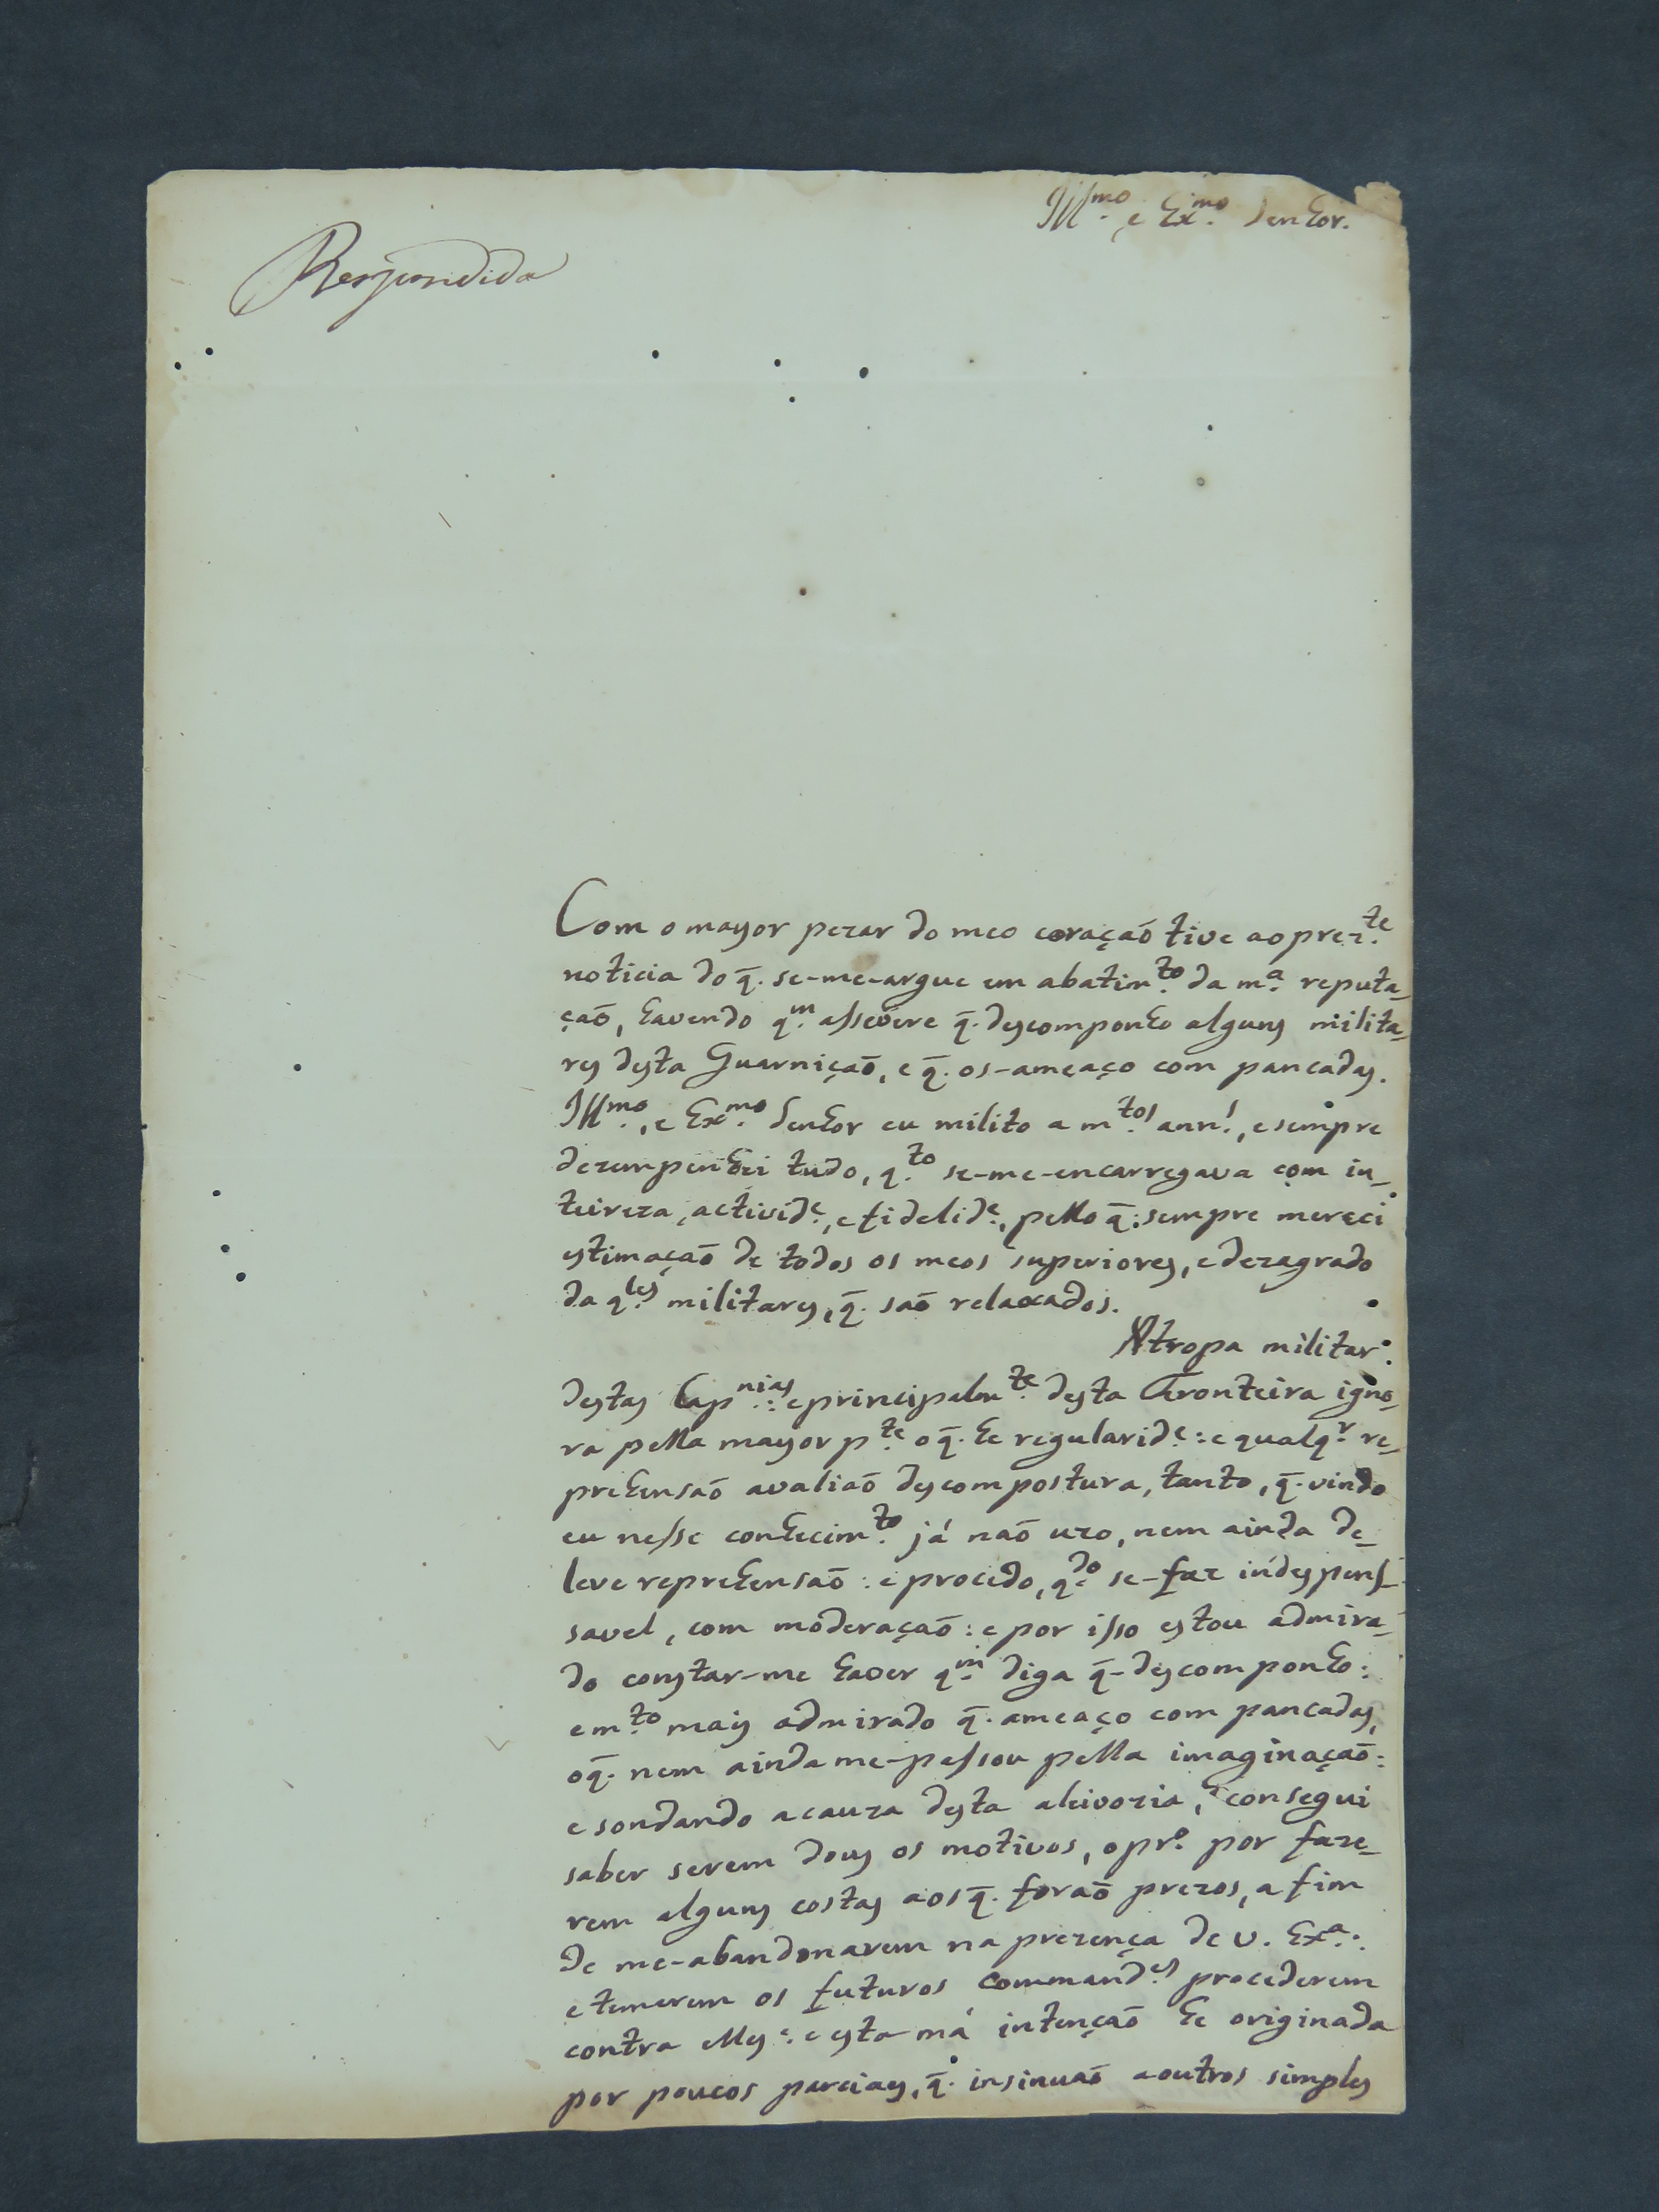 Ill.mo, e Ex.mo Senhor.
Respondida
Com o mayor pezar do meo coração tive ao prez.te
noticia do q̃. se-me-argue em abatim.to da m.a reputa-
ção, havendo q.m assevere q̃. descomponho alguns milita-
res desta Guarnição, e q̃. os-ameaço com pancadas.
Ill.mo, e Ex.mo Senhor eu milito a m.tos ann.s, e sempre
dezempenhei tudo, q.to se-me-encarregava com in-
teireza, activid.e, e fidelid.e, pello q̃: sempre mereci
estimação de todos os meos superiores, e dezagrado
daq.les militares, q̃. saõ relaxados.
A tropa militar.
destas Cap.nias: e principalm.te desta Fronteira igno-
ra pella mayor p.te o q̃. he regularid.e: e qualq.r re-
prehensaõ avaliaõ descompostura, tanto, q̃. vindo
eu nesse conhecim.to já naõ uzo, nem ainda de-
leve reprehensaõ: e procedo, q.do se-faz indespens-
savel, com moderaçaõ: e por isso estou admira-
do constar-me haver q.m diga q̃-descomponho:
e m.to mais admirado q̃. ameaço com pancadas,
o q̃. nem ainda me-passou pella imaginaçaõ:
e sondando a cauza desta aleivozia, consegui
saber serem dous os motivos, o pr.o por faze-
rem alguns costas aos q̃. foraõ prezos, a fim
de me-abandonarem na prezença de V. Ex.a:
e temerem os futuros command.es procederem
contra elles: e esta má intençaõ he originada
por poucos parciaes, q̃. insinuaõ a outros simples